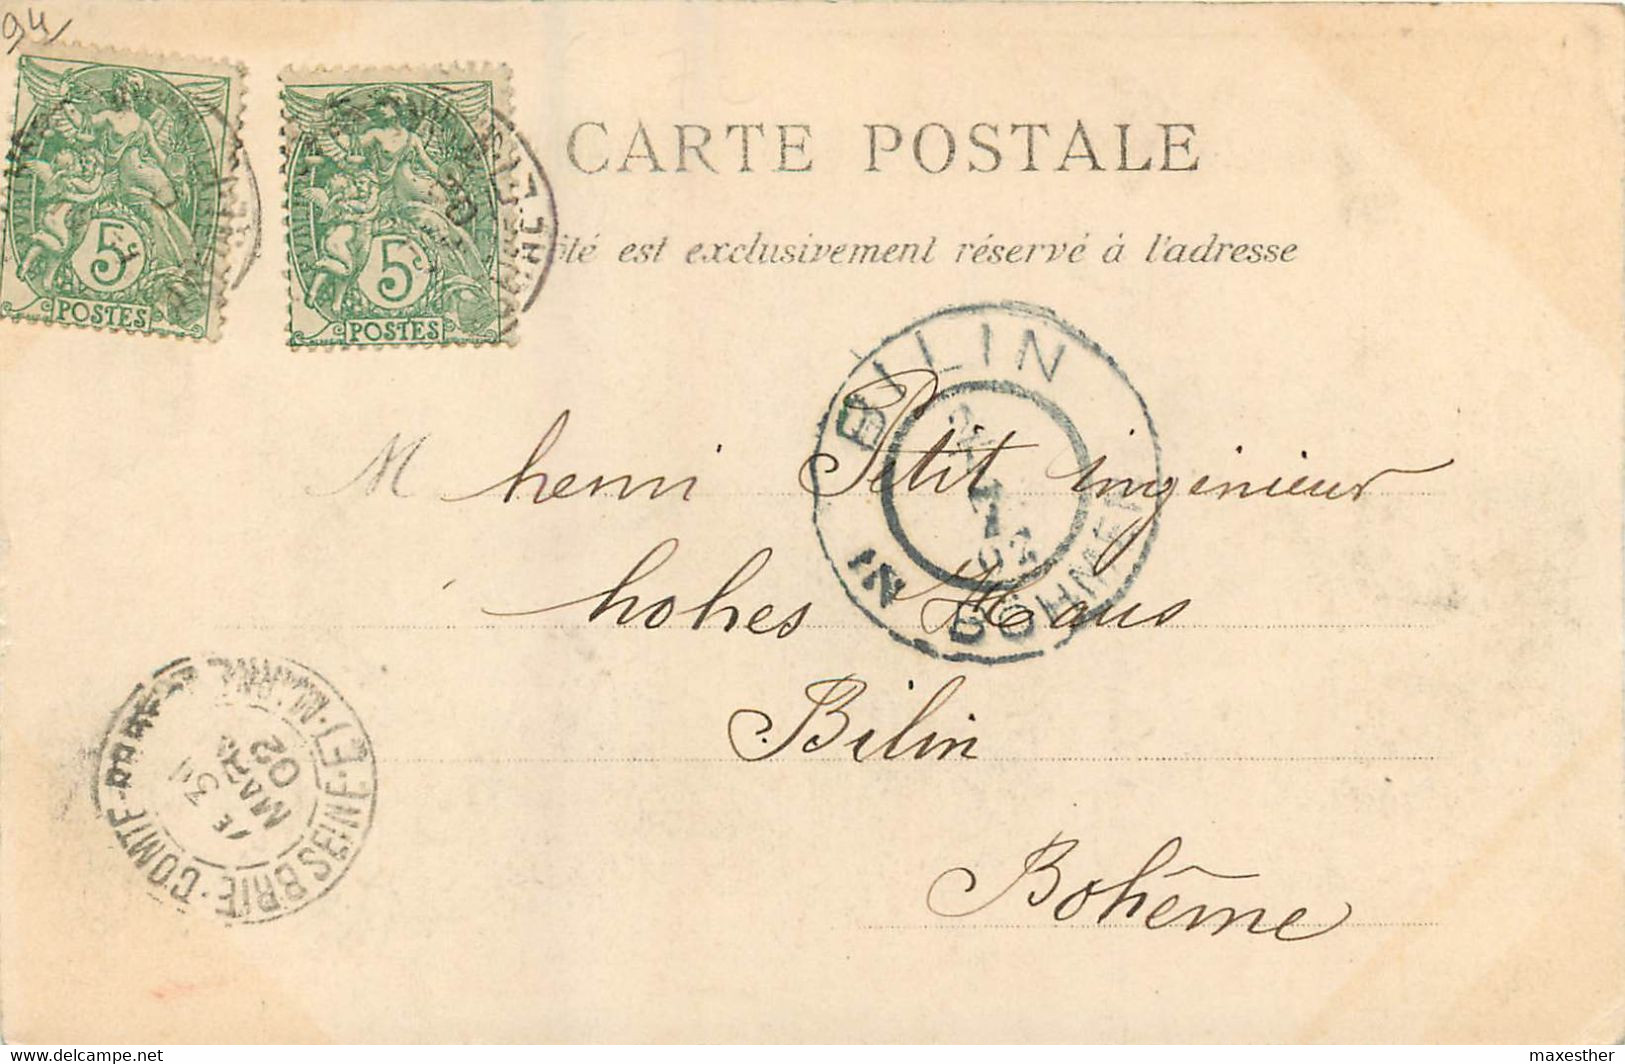 94
5c
POSTES
5c
POSTES
CARTE POSTALE
est exclusivement réservé à l'adresse
BILIN
IN BÖHMEN
02
M henri Petit ingénieur
hohes Haus
Bilin
Bohême
BRIE-COMTE-ROBERT
SEINE-ET-MARNE
7E
31
MARS
02
delcampe.net
maxesther